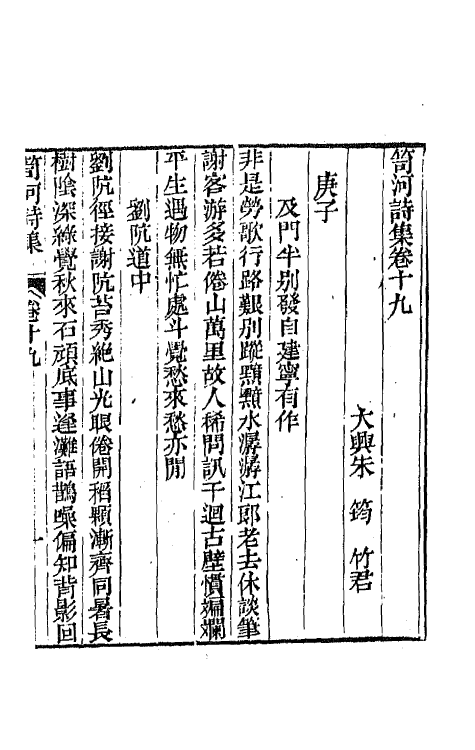 笥河詩集卷十九
大興朱　筠　竹君
庚子
及門半別發自建寧有作
非是勞歌行路艱別蹤顥顥水潺潺江郎老去休談筆
謝客游多若倦山萬里故人稀問訊千迴古壁慣斒斕
平生遇物無忙處斗覺愁來愁亦閒
劉阬道中
劉阬徑接謝阬苔秀絶山光眼倦開稻顆漸齊同暑長
樹陰深綠覺秋來石頑底事逢灘語鵲噪偏知背影回
笥河詩集　卷十九　一